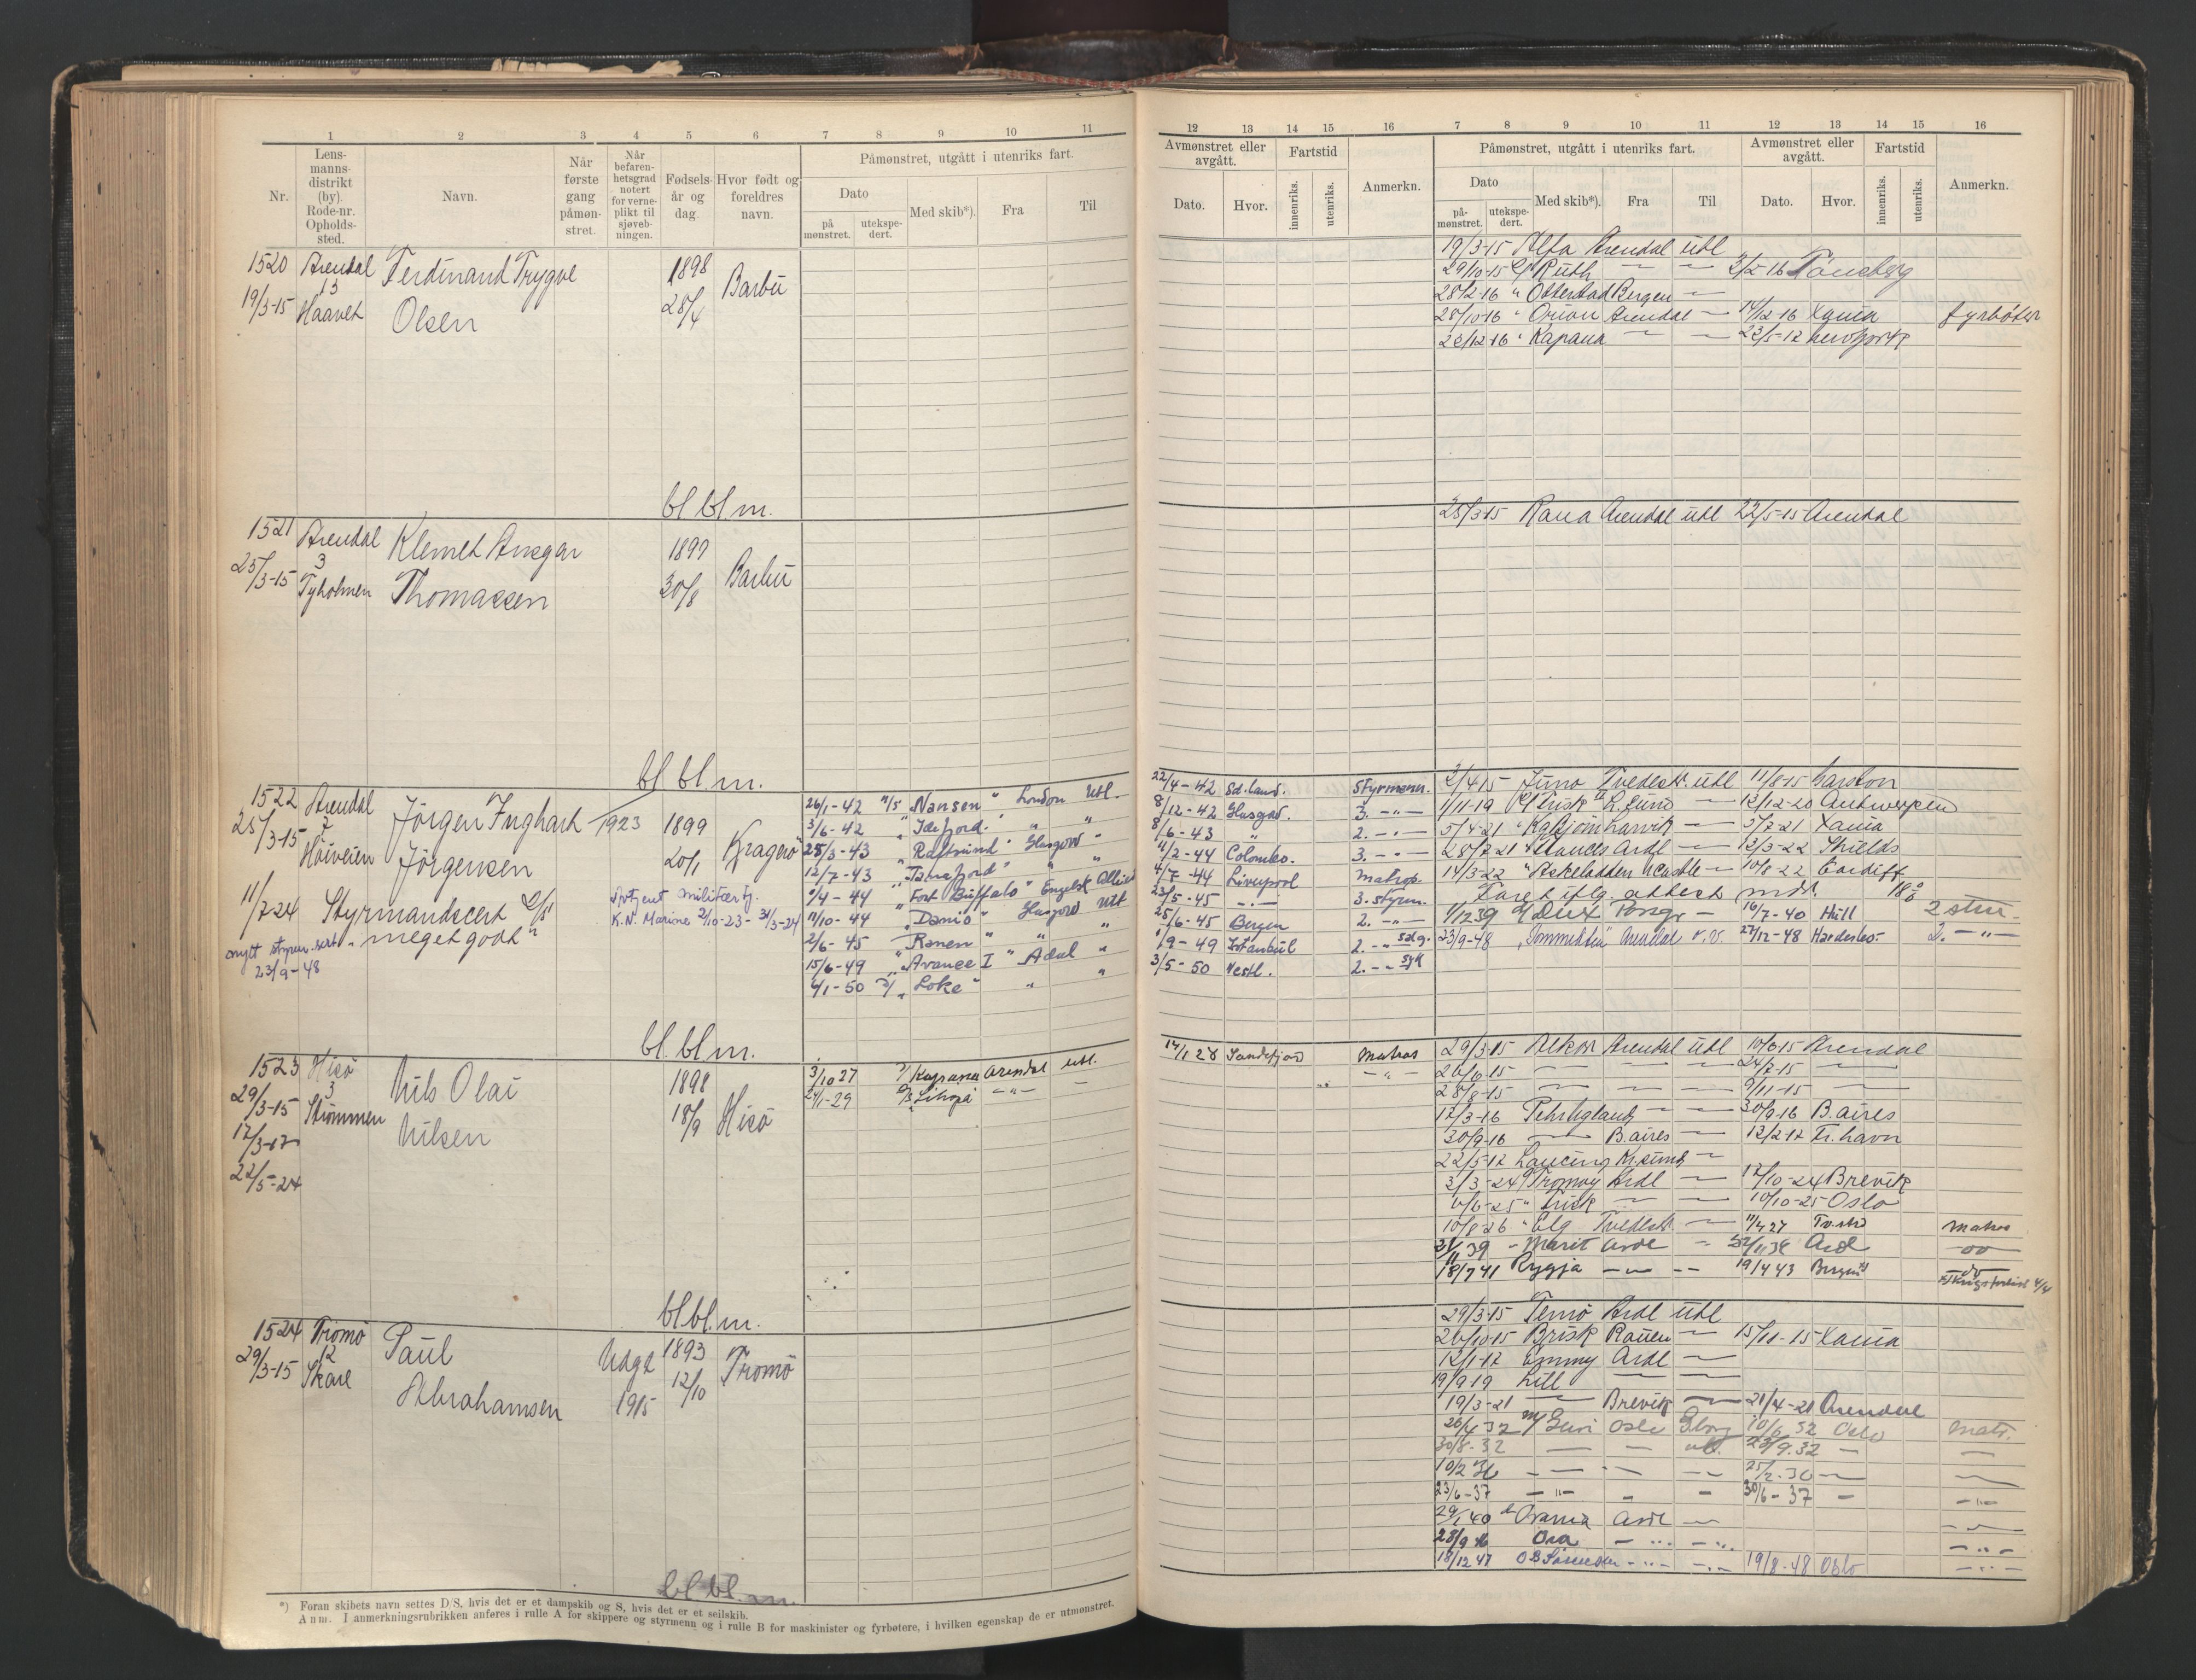 1 2 3 4 5 6 7 8 9 10 11
Nr.
Lens-
manns-
distrikt
(by).
Rode-nr.
Opholds-
sted.
Navn.
Når
første
gang
påmøn-
stret.
Når
befaren-
hetsgrad
notert
for verne-
plikt til
sjøveb-
ningen.
Fødsels-
år og
dag.
Hvor født og
foreldres
navn.
Påmønstret, utgått i utenriks fart.
Dato
på
mønstret.
utekspe-
dert.
Med skib*).
Fra
Til
1520 Arendal Ferdinand Trygve 1898 Barbu
13
19/3-15 Haavet Olsen 28/4
bl bl. m.
1521 Arendal Klemet Ansgar 1899 Barbu
25/3-15 3
Tyholmen Thomassen 30/8
bl bl. m.
1522 Arendal Jörgen Inghart 1923 1899 Kragerö
25/3-15 Höiveien Jörgensen 20/1
11/7 24 Styrmandscert
"meget godt"
nytt styrm. sert.
23/9-48
militærtj.
K.N. Marine 2/10-23 - 31/3-24
26/1-42 "Nansen" London Utl.
3/6-42 "Idefjord" " "
25/3-43 "Raftsund" Glasgow "
12/7-43 "Tanafjord" " "
9/4-44 "Fort Buffalo" Engelsk
11/10-44 "Damö" Glasgow Utl
2/6-45 "Ranen" " "
15/6-49 "Avance I" Adal "
6/1-50 "Loke" " "
bl. bl. m.
1523 Hisö Nils Olai 1898 Hisö
29/3-15 3
Strömmen Nilsen 18/9
17/3-17
22/5-24
3/10 27 Kapana Arendal utl.
24/1-29 — " — —
bl bl. m.
1524 Tromö Paul Udgt 1893 Tromö
12
29/3-15 Skare Abrahamsen 1915 12/10
bl bl. m.
*) Foran skibets navn settes D/S, hvis det er et dampskib og S, hvis det er et seilskib.
Anm. I anmerkningsrubrikken anføres i rulle A for skippere og styrmenn og i rulle B for maskinister og fyrbøtere, i hvilken egenskap de er utmønstret.
12 13 14 15 16 7 8 9 10 11 12 13 14 15 16
Avmønstret eller
avgått.
Fartstid
Dato.
Hvor.
innenriks.
utenriks.
Anmerkn.
Påmønstret, utgått i utenriks fart.
Dato
på-
mønstret.
utekspe-
dert.
Med skib*).
Fra
Til
Avmønstret eller
avgått.
Dato.
Hvor.
Fartstid
innenriks.
utenriks.
Anmerkn.
19/3-15 Alfa Arendal utl
29/10-15 Ruth — — 3/2-16 Tönsberg
28/2-16 " Otterstad Bergen —
28/10-16 " Orion Arendal — 14/12-16 Xania fyrböter
22/12-16 " Kapana — — 22/5-17
25/3-15 Rana Arendal utl 22/5-15 Arendal
22/4-42 styrmann.
8/12-42 Glasgow. 3. — " —
8/6-43 " 2. — " —
11/2-44 Colombo. 3. — " —
4/7-44 Liverpool matros.
23/5-45 — " — 3. styrm.
25/6-45 Bergen 2. — " —
1/9-49 Istanbul 2. — " salg.
3/5-50 Vestl. 2. — " syk
2/4-15 Juno Tvedest. utl 11/8-15 Garston
1/11-19 Trisk — 12/12-20 Antwerpen
5/4-21 Larvik — 5/7-21 Xania
28/7 21 Ardl — 12/3-22 Shields
14/3-22 "Askeladden — 10/8-22 Cardiff
Faret iflg. attest mdr.
1/12 39 Porsgr — 16/7-40 Hull 2 styr.
23/9-48 Arendal 27/12-48 2. — " —
17/1 28 Sandefjord Matros
— " —
29/3-15 Alkor Arendal utl 10/6-15 Arendal
26/6-15 — — — 24/7-15 —
28/8-15 — — — 9/11-15 —
17/3-16 Pehr Ugland — — 30/9-16 B.aires
30/9-16 — B.aires — 12/2-17 Fr.havn
22/5-17 Lancing Kr.sund —
3/3-24 Tromöy Ardl — 17/10-24 Brevik
6/6-25 " Trisk — — 10/10-25 Oslo
10/8-26 " Elg Tvedest. — 11/4 27 Tv.str Matros
39 " Marit Ardl — Ard —oo—
18/7 41 Rygja — — — 19/4 43 Bergen do
29/3-15 Temö Ardl utl
26/10-15 Brisk Rauen — 15/11-15 Xania
12/1-17 Emmy Ardl —
19/9 19 Lill — —
19/3-21 — Brevik — 21/4-21 Arendal
26/4 32 Guri Oslo Gbrg 10/6 32 Oslo Matr.
30/8-32 — — utl. 23/9.32 — —
10/2 36 — — — — 25/2-36 — —
23/6-37 — " — — — 30/6-37 — — " —
29/1 40 Ardl — — " —
28/9 46 Osa — " — — " — — " —
18/12 47 — " — — " — 19/8-48 Oslo — " —